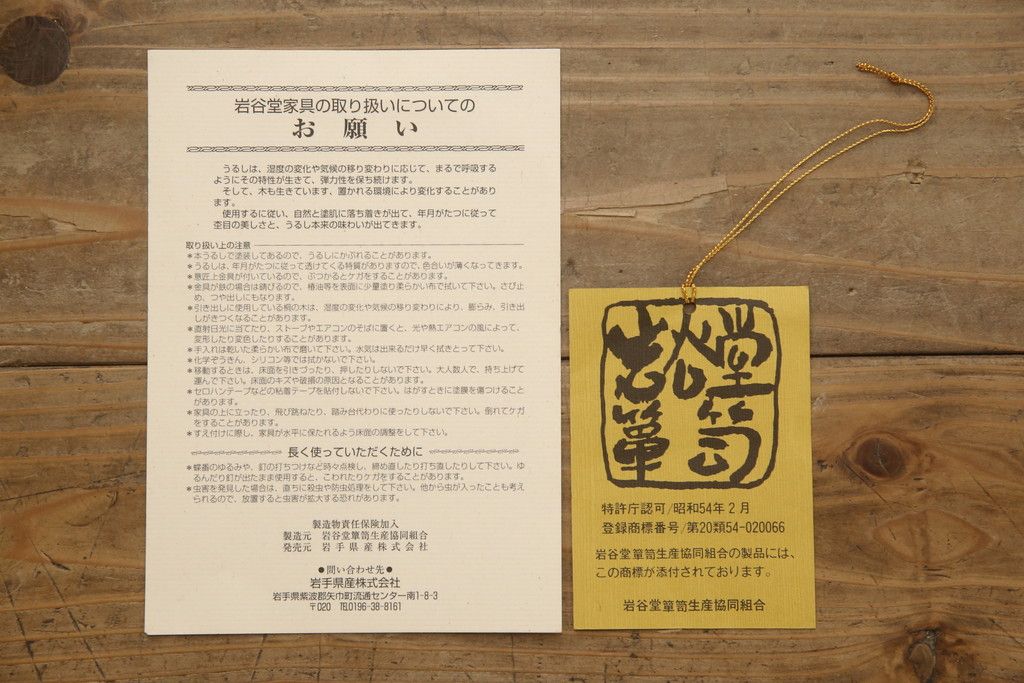 岩谷堂家具の取り扱いについての
お願い
うるしは、湿度の変化や気候の移り変わりに応じて、まるで呼吸する
ようにその特性が生きて、弾力性を保ち続けます。
そして、木も生きています、置かれる環境により変化することがあり
ます。
使用するに従い、自然と塗肌に落ち着きが出て、年月がたつに従って
杢目の美しさと、うるし本来の味わいが出てきます。
取り扱い上の注意
＊本うるしで塗装してあるので、うるしにかぶれることがあります。
＊うるしは、年月がたつに従って透けてくる特質がありますので、色合いが薄くなってきます。
＊意匠上金具が付いているので、ぶつかるとケガをすることがあります。
＊金具が鉄の場合は錆びるので、椿油等を表面に少量塗り柔らかい布で拭いて下さい。さび止
め、つや出しにもなります。
＊引き出しに使用している桐の木は、湿度の変化や気候の移り変わりにより、膨らみ、引き出
しがきつくなることがあります。
＊直射日光に当てたり、ストーブやエアコンのそばに置くと、光や熱エアコンの風によって、
変形したり変色したりすることがあります。
＊手入れは乾いた柔らかい布で磨いて下さい。水気は出来るだけ早く拭きとって下さい。
＊化学ぞうきん、シリコン等では拭かないで下さい。
＊移動するときは、床面を引きづったり、押したりしないで下さい。大人数人で、持ち上げて
運んで下さい。床面のキズや破損の原因となることがあります。
＊セロハンテープなどの粘着テープを貼付しないで下さい。はがすときに塗膜を傷つけること
があります。
＊家具の上に立ったり、飛び跳ねたり、踏み台代わりに使ったりしないで下さい。倒れてケガ
をすることがあります。
＊すえ付けに際し、家具が水平に保たれるよう床面の調整をして下さい。
長く使っていただくために
＊蝶番のゆるみや、釘の打ちつけなど時々点検し、締め直したり打ち直したりして下さい。ゆ
るんだり釘が出たまま使用すると、こわれたりケガをすることがあります。
＊虫害を発見した場合は、直ちに殺虫や防虫処理をして下さい。他から虫が入ったことも考え
られるので、放置すると虫害が拡大する恐れがあります。
製造物責任保険加入
製造元 岩谷堂簞笥生産協同組合
発売元 岩手県産株式会社
●問い合わせ先●
岩手県産株式会社
岩手県紫波郡矢巾町流通センター南1-8-3
〒020 TEL0196-38-8161
岩谷堂
簞笥
特許庁認可/昭和54年2月
登録商標番号/第20類54-020066
岩谷堂簞笥生産協同組合の製品には、
この商標が添付されております。
岩谷堂簞笥生産協同組合